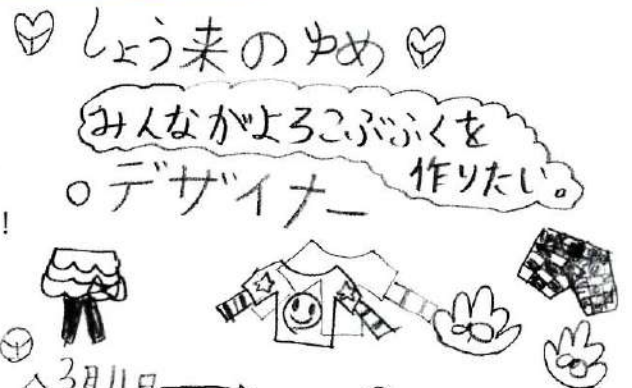 しょう来のゆめ
みんながよろこぶふくを
作りたい。
○デザイナー
!
3月11日